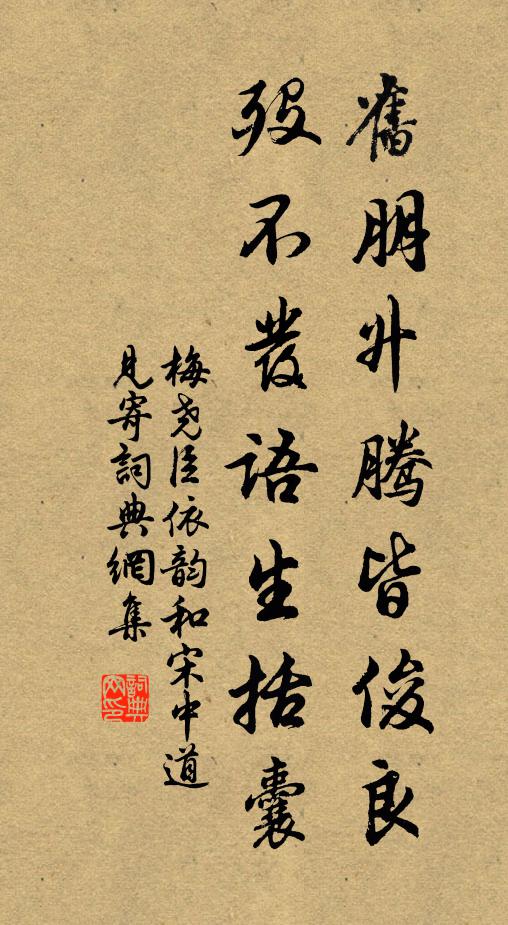 舊朋升騰皆俊良
歿不發語生括囊
梅尧臣依韵和宋中道
見寄詞典網集
詞典
网印